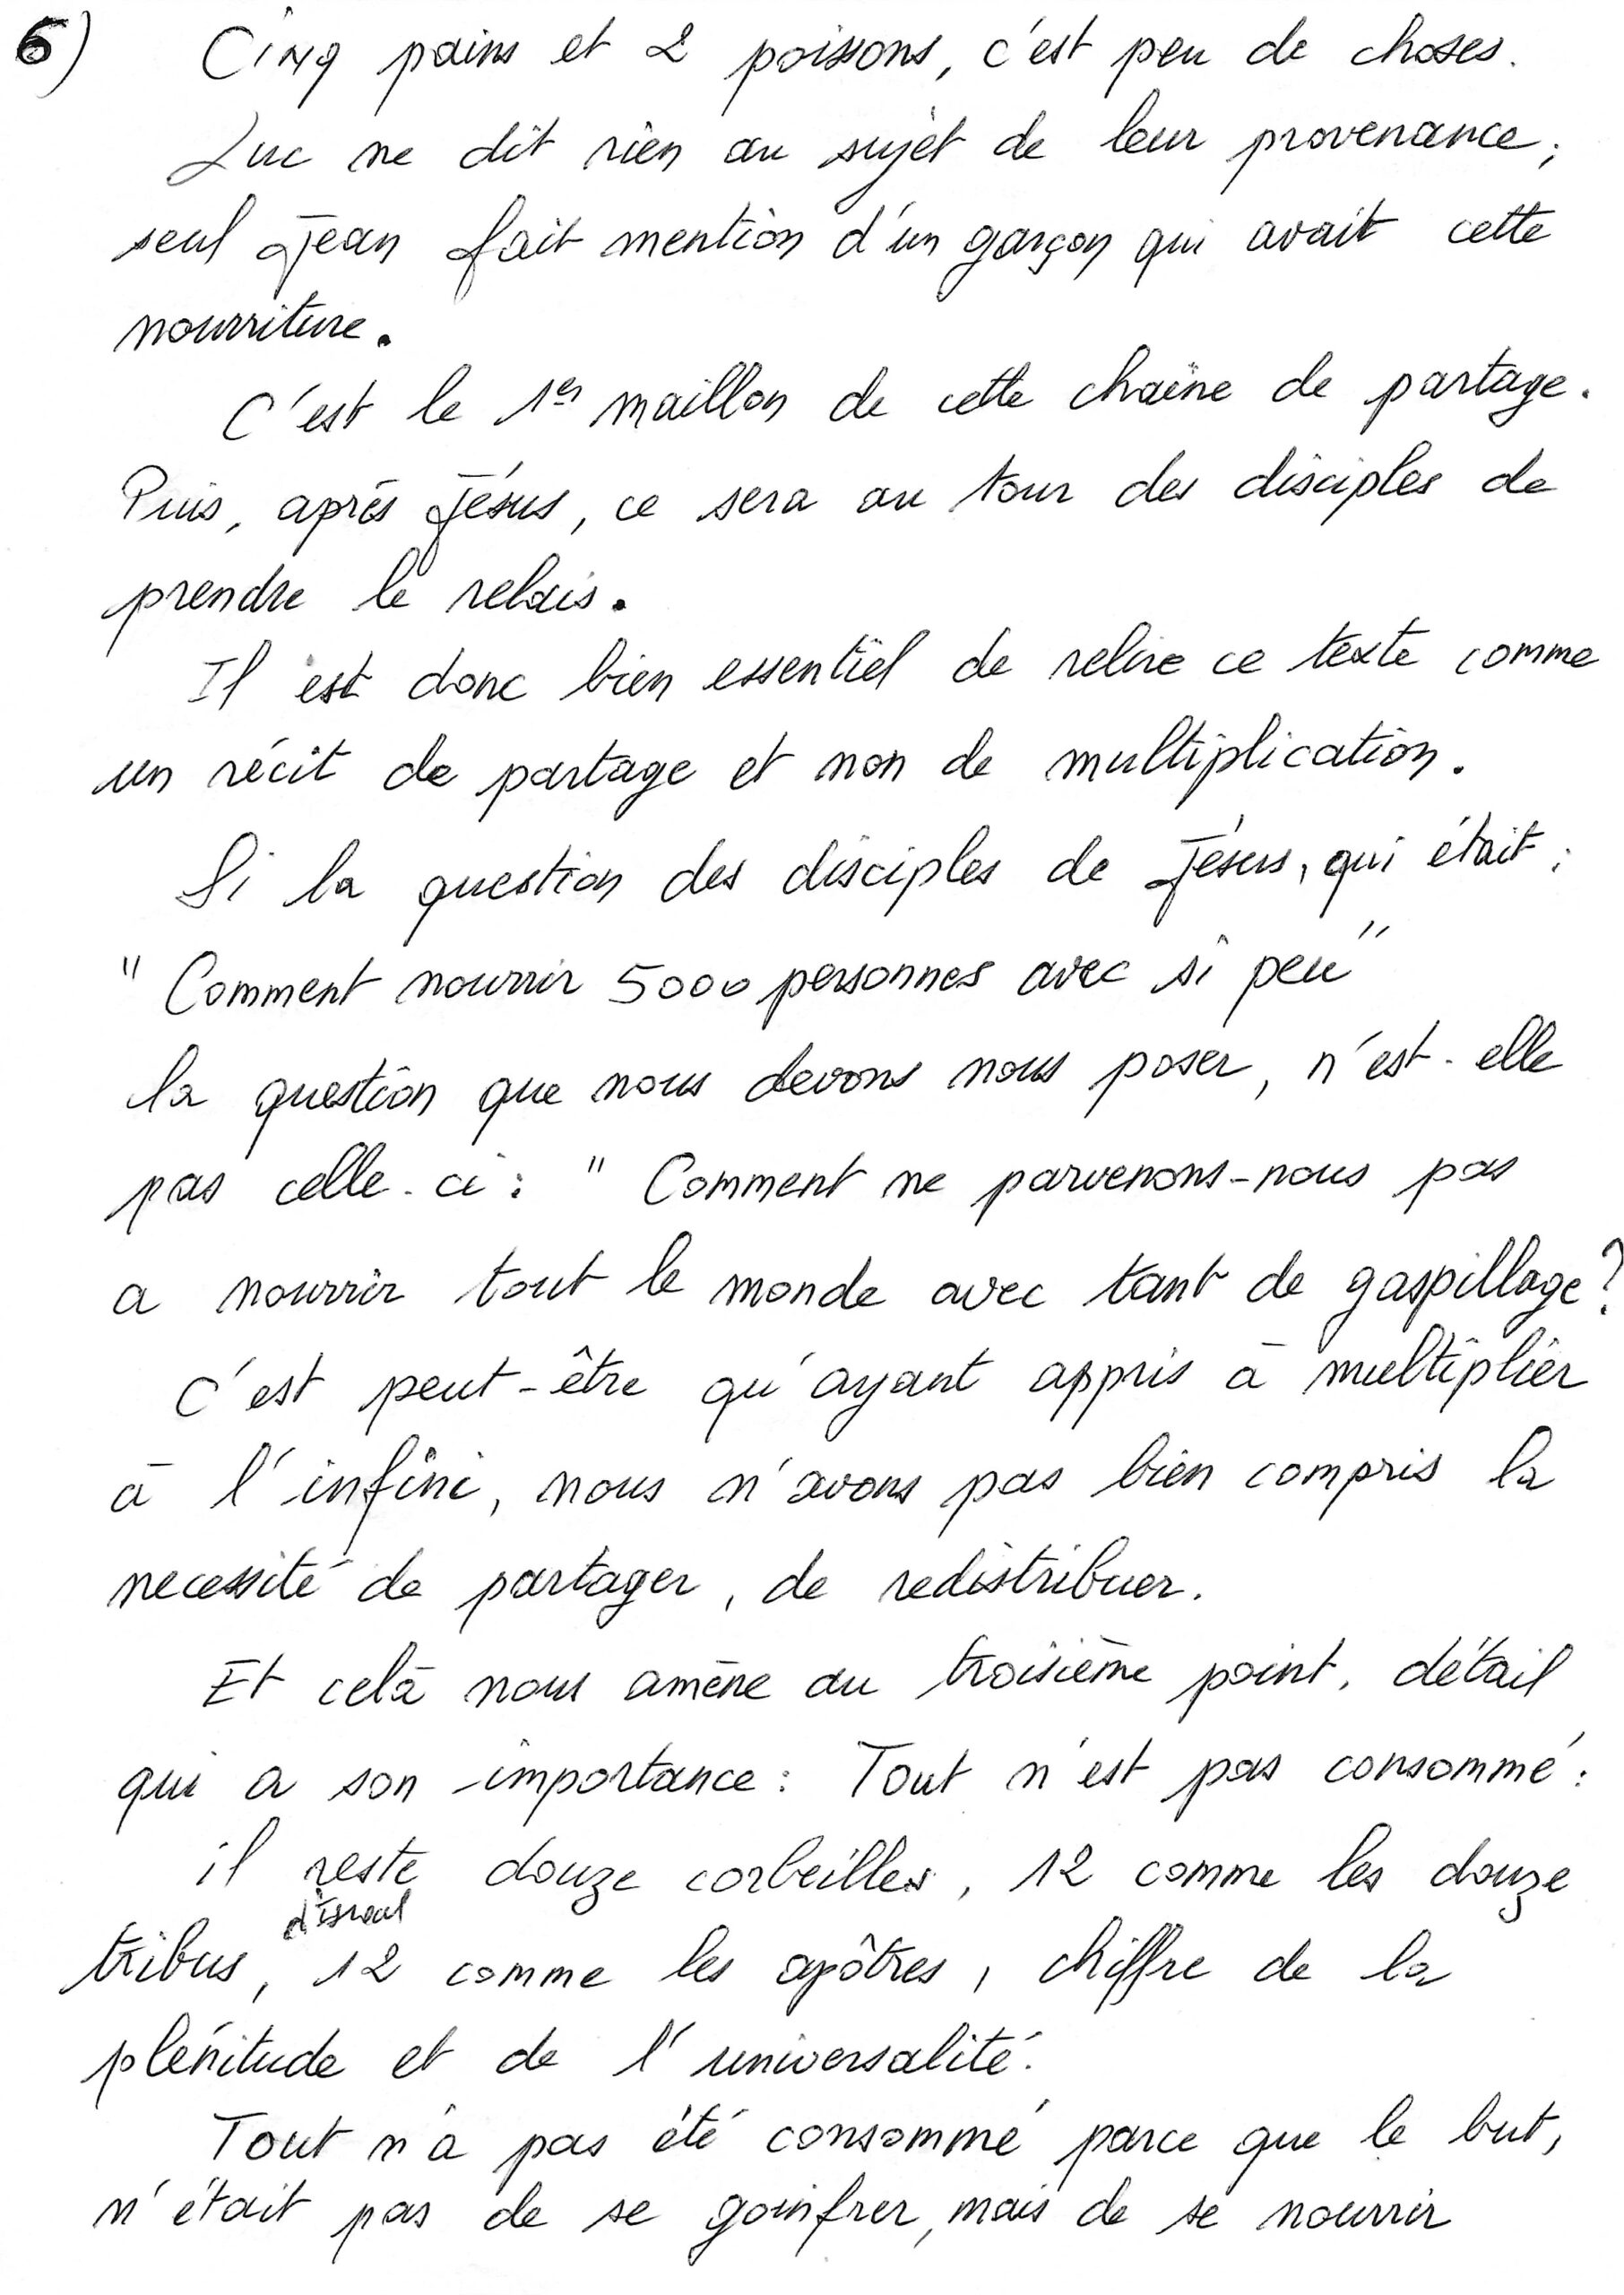 6) Cinq pains et 2 poissons, c'est peu de choses.
Luc ne dit rien au sujet de leur provenance ;
seul Jean fait mention d'un garçon qui avait cette
nourriture.
C'est le 1er maillon de cette chaîne de partage.
Puis, après Jésus, ce sera au tour des disciples de
prendre le relais.
Il est donc bien essentiel de relire ce texte comme
un récit de partage et non de multiplication.
Si la question des disciples de Jésus, qui était :
" Comment nourrir 5000 personnes avec si peu "
la question que nous devons nous poser, n'est-elle
pas celle-ci : " Comment ne parvenons-nous pas
a nourrir tout le monde avec tant de gaspillage ?
C'est peut-être qu'ayant appris à multiplier
à l'infini, nous n'avons pas bien compris la
necessité de partager, de redistribuer.
Et celà nous amène au troisième point, détail
qui a son importance : Tout n'est pas consommé :
il reste douze corbeilles, 12 comme les douze
d'Israël
tribus, 12 comme les apôtres, chiffre de la
plénitude et de l'universalité.
Tout n'a pas été consommé parce que le but,
n'était pas de se goinfrer, mais de se nourrir